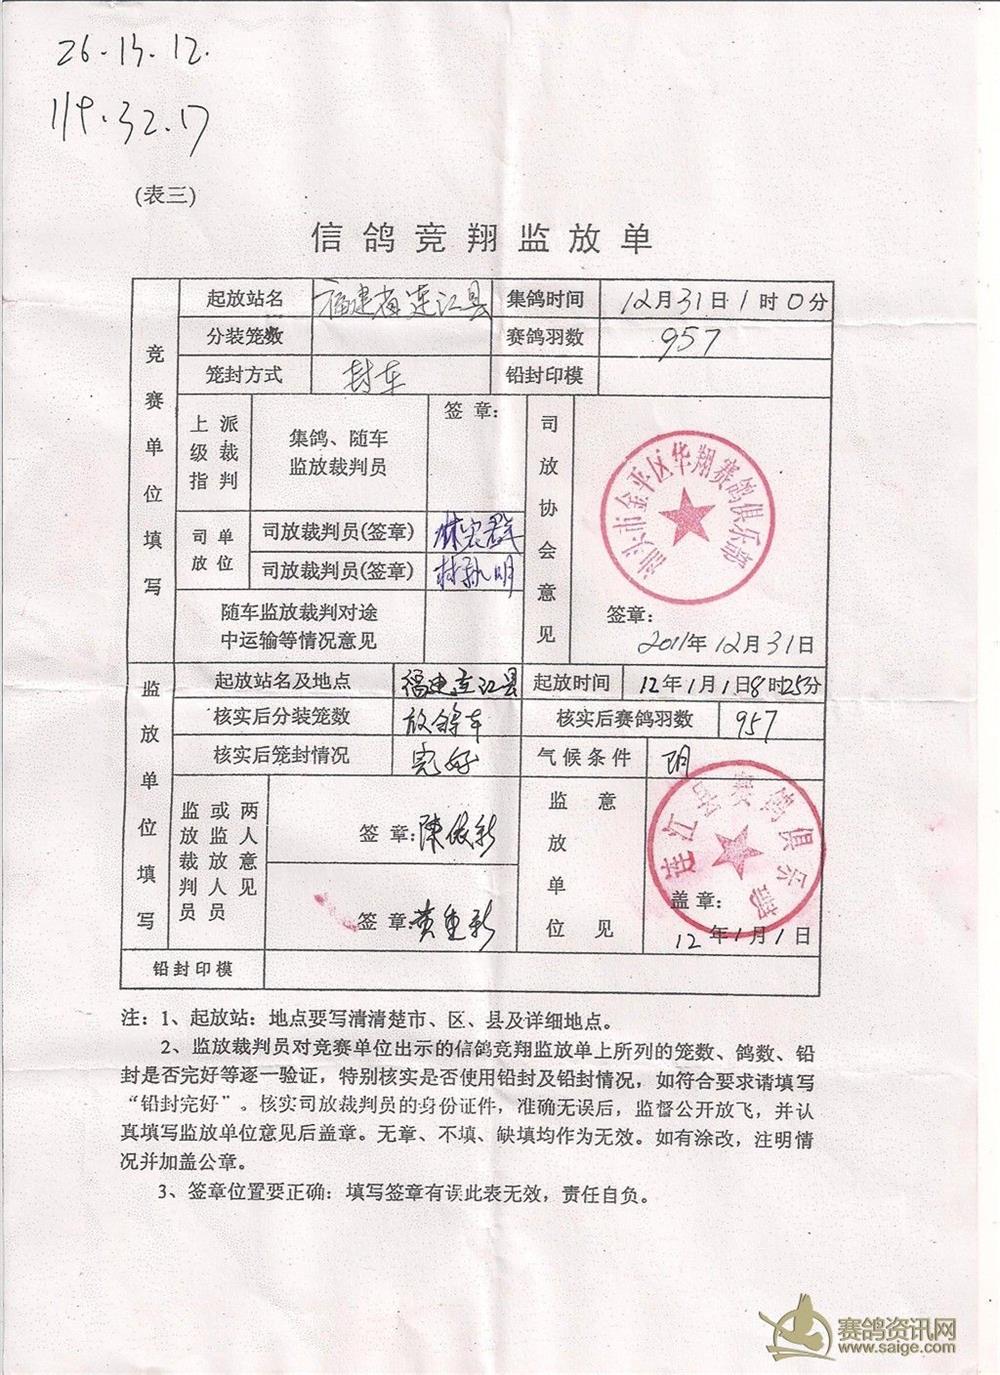 26.13.12.
119.32.17
(表三)
信鸽竞翔监放单
竞赛单位填写
起放站名 福建省连江县 集鸽时间 12月31日1时0分
分装笼数 赛鸽羽数 957
笼封方式 封车 铅封印模
上级指派裁判 集鸽、随车监放裁判员 签章：
司放单位 司放裁判员(签章)
司放裁判员(签章)
随车监放裁判对途中运输等情况意见
司放协会意见
汕头市金平区华翔赛鸽俱乐部
签章：
2011年12月31日
监放单位填写
起放站名及地点 福建连江县 起放时间 12年1月1日8时25分
核实后分装笼数 放鸽车 核实后赛鸽羽数 957
核实后笼封情况 完好 气候条件 阴
监放裁判员或监放人员两人意见
签章：陳依新
签章：黄重新
监放单位意见
连江县赛鸽俱乐部
盖章：
12年1月1日
铅封印模
注：1、起放站：地点要写清清楚市、区、县及详细地点。
2、监放裁判员对竞赛单位出示的信鸽竞翔监放单上所列的笼数、鸽数、铅
封是否完好等逐一验证，特别核实是否使用铅封及铅封情况，如符合要求请填写
“铅封完好”。核实司放裁判员的身份证件，准确无误后，监督公开放飞，并认
真填写监放单位意见后盖章。无章、不填、缺填均作为无效。如有涂改，注明情
况并加盖公章。
3、签章位置要正确：填写签章有误此表无效，责任自负。
赛鸽资讯网
www.saige.com